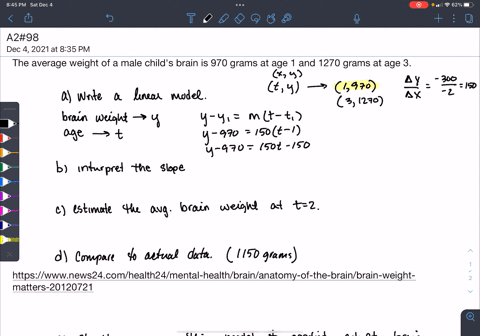 8:45 PM Sat Dec 4
62%
A2#98
Dec 4, 2021 at 8:35 PM
The average weight of a male child's brain is 970 grams at age 1 and 1270 grams at age 3.
(x, y)
(t, y) → (1, 970)
(3, 1270)
Δy/Δx = -300/-2 = 150
a) Write a linear model.
brain weight → y
age → t
y-y₁ = m(t-t₁)
y-970 = 150(t-1)
y-970 = 150t-150
b) intrpret the slope
c) estimate the avg. brain weight at t=2.
d) Compare to actual data. (1150 grams)
https://www.news24.com/health24/mental-health/brain/anatomy-of-the-brain/brain-weight-
matters-20120721